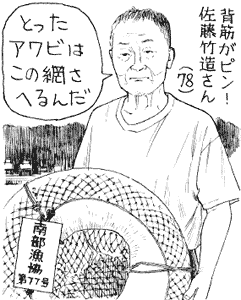 背筋がピン！
佐藤竹造さん
（78）
とった
アワビは
この網さ
へるんだ
南部漁協
第77号